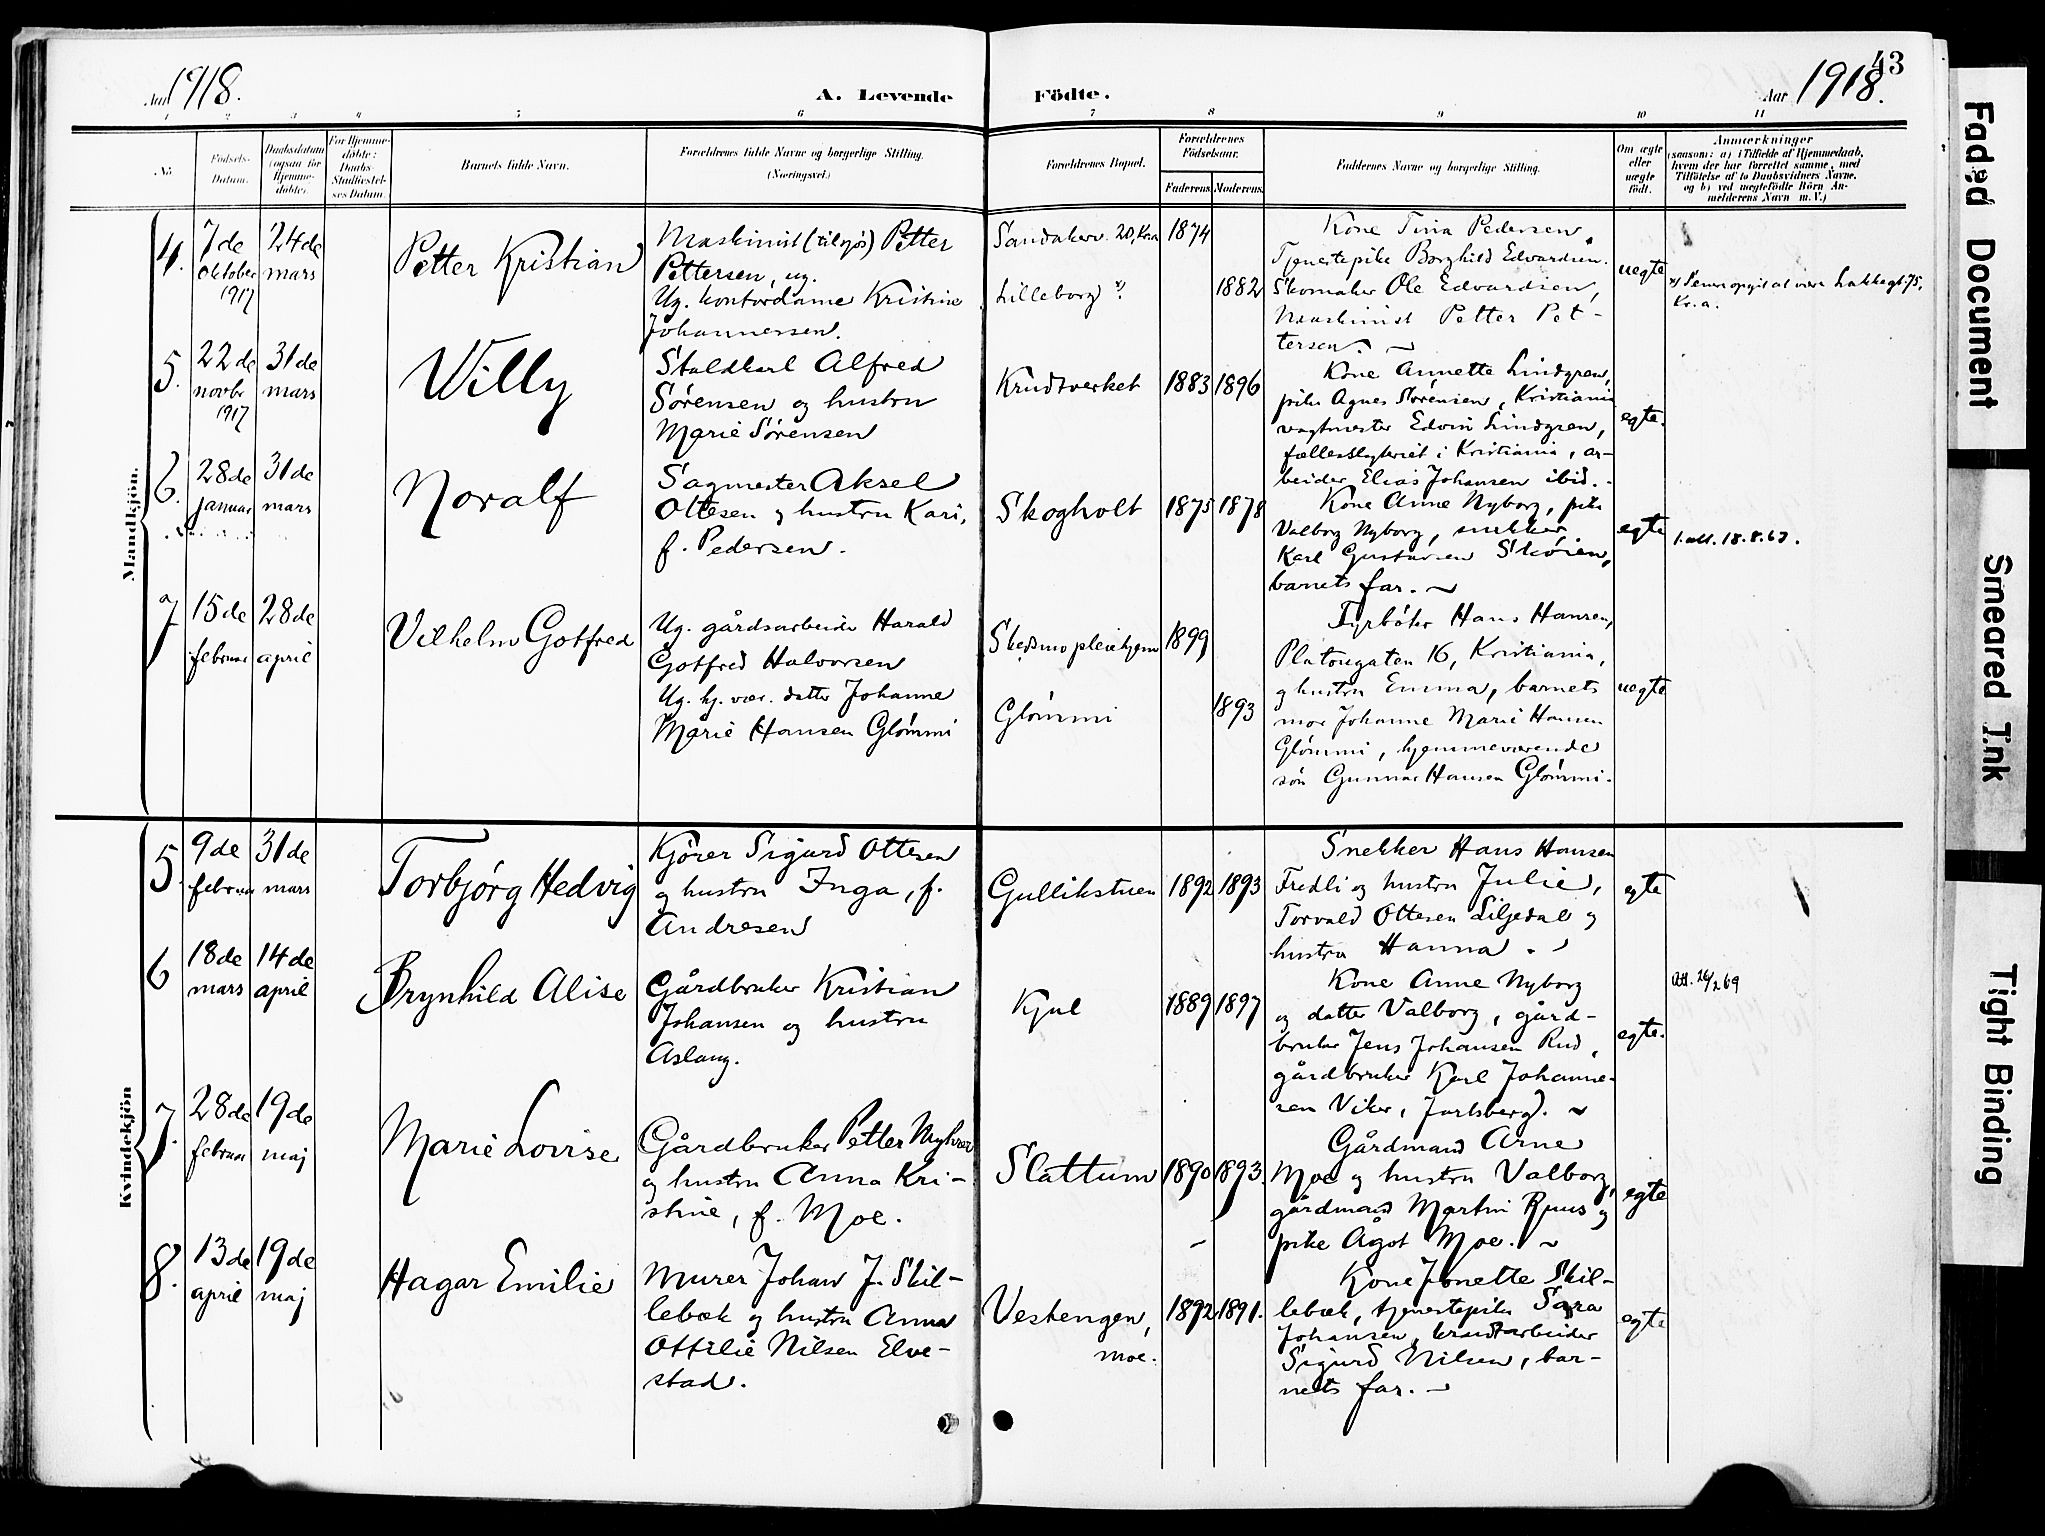 Aar 1918.
A. Levende Födte.
43
Aar 1918.
1 2 3 4 5 6 7 8 9 10 11
No
Födsels-
Datum.
Daabsdatum
(ogsaa for
Hjemme-
döbte).
For Hjemme-
döbte:
Daabs-
Stadfæstel-
ses Datum.
Barnets fulde Navn.
Forældrenes fulde Navne og borgerlige Stilling.
(Næringsvei.)
Forældrenes Bopæl.
Forældrenes
Födselsaar.
Faderens. Moderens.
Faddernes Navne og borgerlige Stilling.
Om ægte
eller
uægte
födt.
Anmærkninger
(saasom: a) i Tilfælde af Hjemmedaab,
hvem der har forrettet samme, med
Tilföielse af to Daabsvidners Navne,
og b) ved uægtefödte Börn An-
melderens Navn m. V.)
Mandkjön.
4.
7de
oktober
1917
24de
mars
Petter Kristian
Maskinist (tilsjøs) Petter
Pettersen, ug.
Ug. kontordame Kristine
Johannessen.
Sandakerv. 20, Kria
Lilleborg x).
1874
1882
Kone Tina Pedersen,
Tjenestepike Borghild Edvardsen.
Skomaker Ole Edvardsen,
Maskinist Petter Pet-
tersen.
uegte
x) Senere opgit at være Lakkegt. 75,
Kr.a.
5.
22de
novbr
1917
31de
mars
Willy
Staldkarl Alfred
Sørensen og hustru
Marie Sørensen
Krudtverket
1883
1896
Kone Annette Lindgren,
pike Agnes Sørensen, Kristiania
vagtmester Edvin Lindgren,
fællesslagteriet i Kristiania, ar-
beider Elias Johansen ibid.
egte.
6.
28de
januar
31de
mars
Noralf
Sagmester Aksel
Ottesen og hustru Kari,
f. Pedersen.
Skogholt
1875
1878
Kone Anne Nyborg, pike
Valborg Nyborg, snekker
Karl Gustavsen Skøien,
barnets far.
egte
1.att. 18.8.67.
7
15de
februar
28de
april
Vilhelm Gotfred
Ug. gårdsarbeider Harald
Gotfred Halvorsen
Ug. hj. vær. datter Johanne
Marie Hansen Glømmi
Skedsmo pleiehjem
Glømmi
1899
1893
Fyrbøter Hans Hansen,
Platougaten 16, Kristiania,
og hustru Emma, barnets
mor Johanne Marie Hansen
Glømmi, hjemmeværende
søn Gunnar Hansen Glømmi.
uegte
Kvindekjön
5.
9de
februar
31de
mars
Torbjørg Hedvig
Kjører Sigurd Ottesen
og hustru Inga, f.
Andresen
Gullikstuen
1892
1893
Snekker Hans Hansen
Fredli og hustru Julie,
Torvald Ottesen Liljedal og
hustru Hanna.
egte
6
18de
mars
14de
april
Brynhild Alise
Gårdbruker Kristian
Johansen og hustru
Aslaug.
Kjul
1889
1897
Kone Anne Nyborg
og datter Valborg, gård-
bruker Jens Johansen Rud,
gårdbruker Karl Johanne-
sen Viker, Jarlsberg).
egte.
Att. 26/2 69
7.
28de
februar
19de
maj
Marie Lovise
Gårdbruker Petter Myhrer
og hustru Anna Kri-
stine, f. Moe.
Slattum
1890
1893.
Gårdmand Arne
Moe og hustru Valborg,
gårdmand Martin Ruus og
pike Ågot Moe.
egte
8.
13de
april
19de
maj
Hagar Emilie
Murer Johan J. Skil-
lebæk og hustru Anna
Ottilie Nilsen Elve-
stad.
Vestengen,
Moe.
1892
1891.
Kone Jonette Skil-
lebæk, tjenestepike Sara
Johansen, krudtarbeider
Sigurd Nilsen, bar-
nets far.
egte
Faded Document
Smeared Ink
Tight Binding